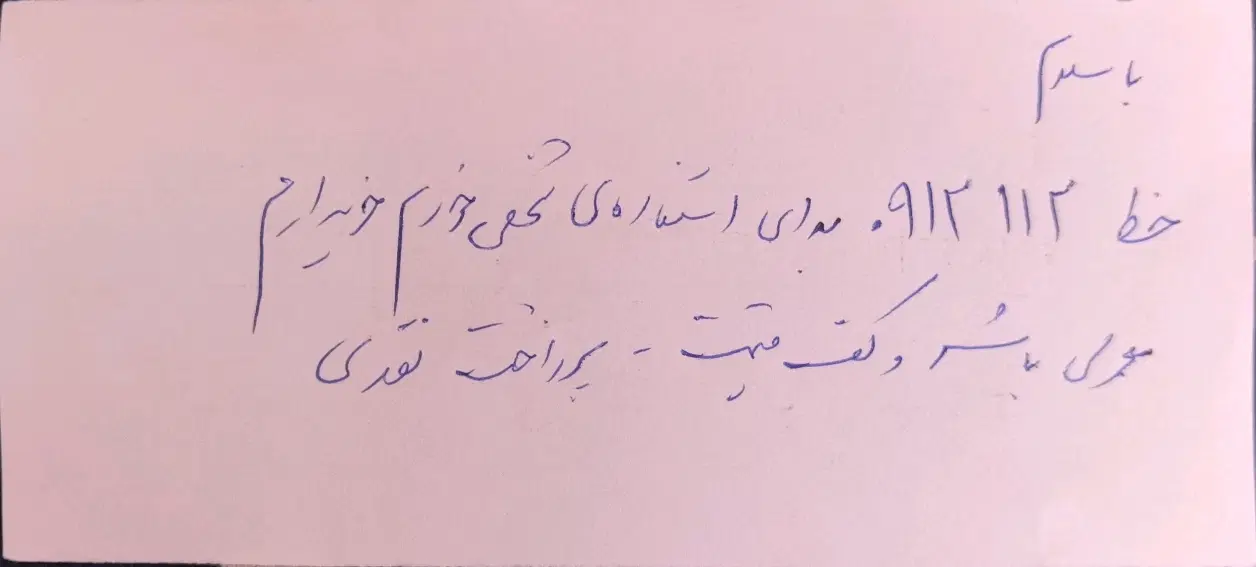 با سلام
خط ۱۱۲ ۰۹۱۲ برای استفاده‌ی شخصی خودم خریدارم
معمولی باشد و کف قیمت - پرداخت نقدی